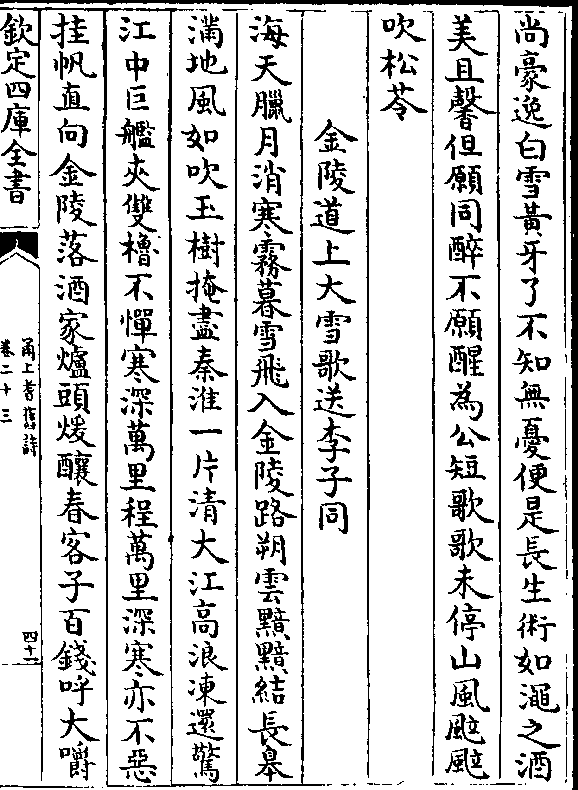 尚豪逸白雪黃牙了不知無憂便是長生術如澠之酒
美且馨但願同醉不願醒為公短歌歌未停山風颭颭
吹松苓
金陵道上大雪歌送李子同
海天臘月消寒霧暮雪飛入金陵路朔雲黯黯結長皋
滿地風如吹玉樹掩盡秦淮一片清大江高浪凍還驚
江中巨艦夾雙櫓不憚寒深萬里程萬里深寒亦不惡
挂帆直向金陵落酒家爐頭煖釀春客子百錢呼大嚼
欽定四庫全書
甬上耆舊詩
卷二十三
四十